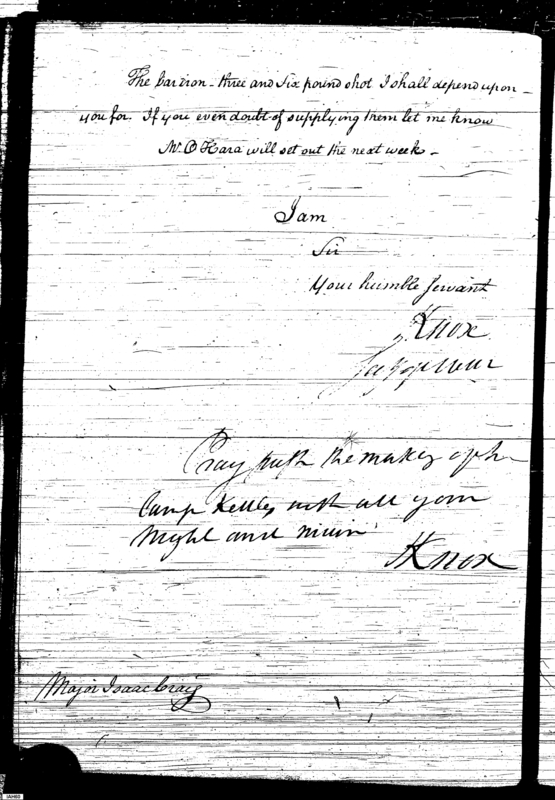 The bar iron - three and six pound shot I shall depend upon -
you for. If you even doubt of supplying them let me know
Mr. O Hara will set out the next week -
I am
Sir
Your humble servant
HKnox
Sey of War
Pray push the making of the
Camp Kettles with all your
Might and main.
HKnox
Major Isaac Craig
IAH03